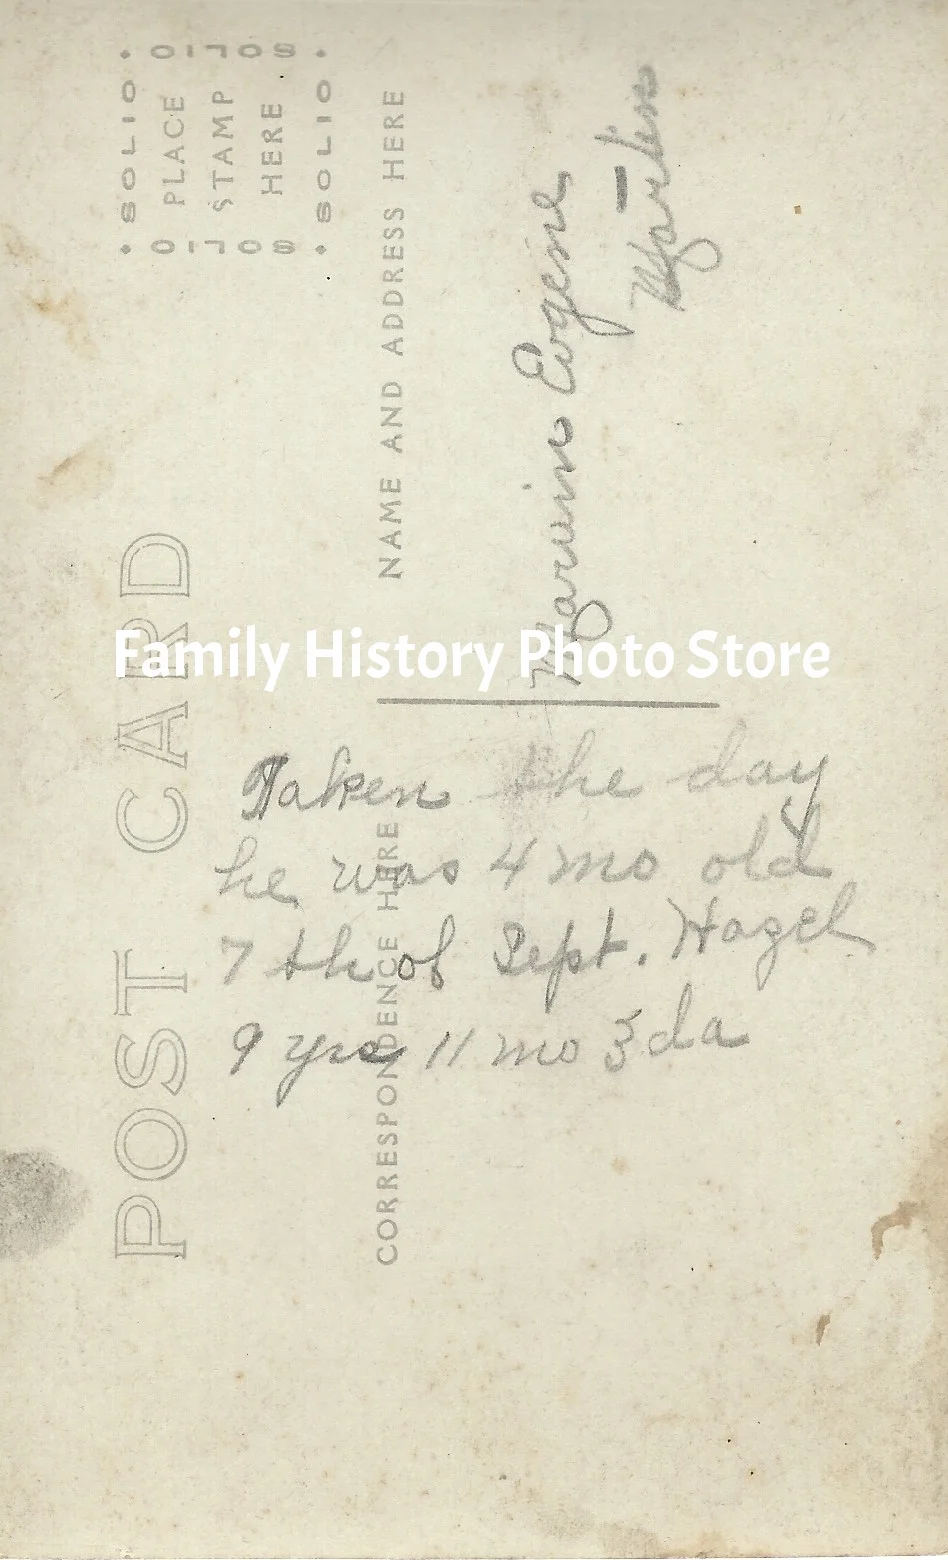 SOLIO
SOLIO
PLACE
STAMP
HERE
SOLIO
SOLIO
POST CARD
NAME AND ADDRESS HERE
CORRESPONDENCE HERE
Marvin Eugene
Martin
Family History Photo Store
Taken the day
he was 4 mo old
7th of Sept. Hazel
9 yrs 11 mo 3 da